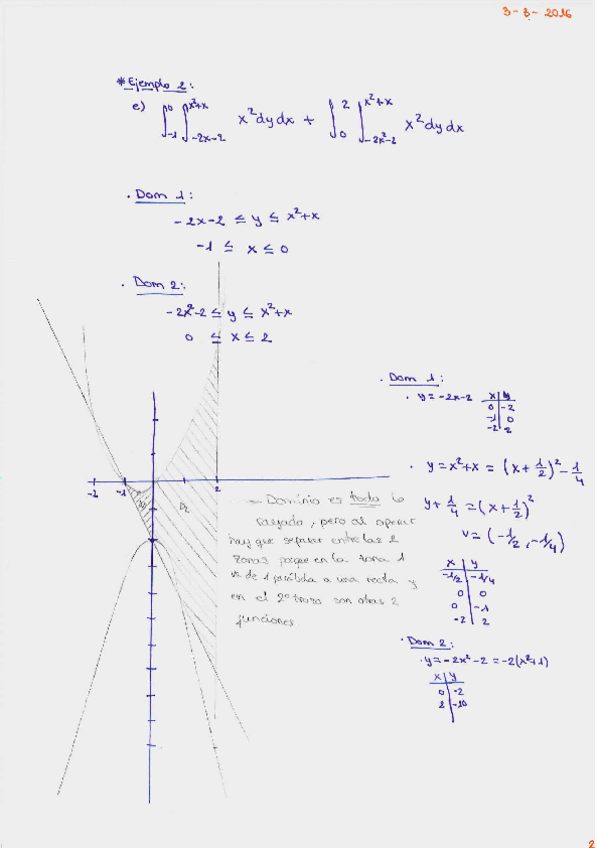 3-3-2016
*Ejemplo 2:
e) ∫_{-1}^{0} ∫_{-2x-2}^{x²+x} x² dy dx + ∫_{0}^{2} ∫_{-2x²-2}^{x²+x} x² dy dx
· Dom 1:
-2x-2 ≤ y ≤ x²+x
-1 ≤ x ≤ 0
· Dom 2:
-2x²-2 ≤ y ≤ x²+x
0 ≤ x ≤ 2
-2 -1 2
D1 D2
→ Dominio es todo lo
rayado, pero al operar
hay que separar entre las 2
zonas porque en la zona 1
va de 1 parábola a una recta y
en el 2º trozo son otras 2
funciones
· Dom 1:
· y = -2x-2
x y
0 -2
-1 0
-2 2
· y = x²+x = (x+1/2)² - 1/4
y + 1/4 = (x+1/2)²
v = (-1/2, -1/4)
x y
-1/2 -1/4
0 0
0 -1
-2 2
· Dom 2:
· y = -2x²-2 = -2(x²+1)
x y
0 -2
2 -10
2